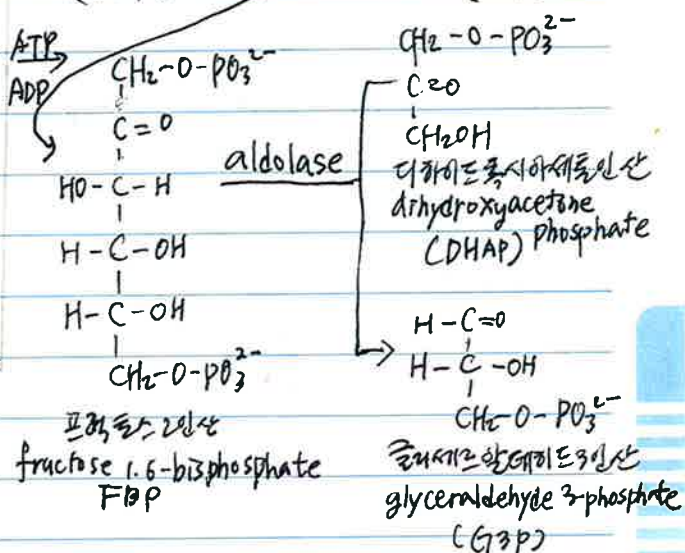 ATP
ADP
CH₂-O-PO₃²⁻
C=O
HO-C-H
H-C-OH
H-C-OH
CH₂-O-PO₃²⁻
프럭토스 2인산
fructose 1.6-bisphosphate
FBP
aldolase
CH₂-O-PO₃²⁻
C=O
CH₂OH
디하이드록시아세톤인산
dihydroxyacetone
(DHAP) phosphate
H-C=O
H-C-OH
CH₂-O-PO₃²⁻
글리세르알데히드3인산
glyceraldehyde 3-phosphate
(G3P)